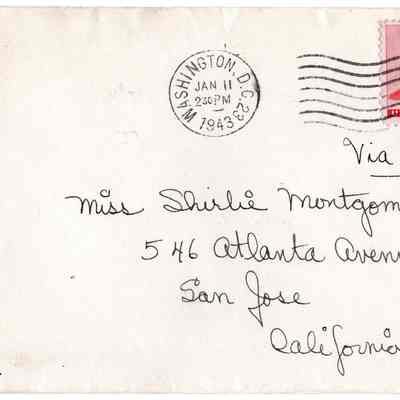 WASHINGTON, D.C. 23
JAN 11
230 PM
1943
Via
Miss Shirlie Montgom
546 Atlanta Aven
San Jose
California